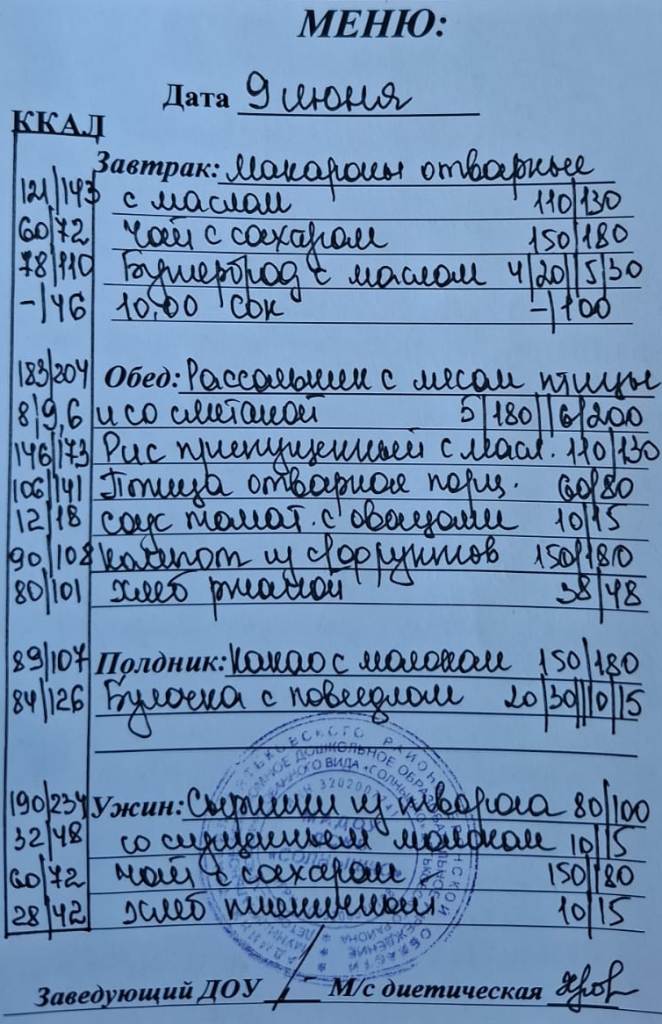 МЕНЮ:
Дата 9 июня
ККАД
Завтрак: Макароны отварные
121|143 с маслом 110|130
60|72 Чай с сахаром 150|180
78|110 Бутерброд с маслом 4|20||5|30
-|46 10,00 сок -|100
183|204 Обед: Рассольник с мясом птицы
8|9,6 и со сметаной 5|180||6|200
146|173 Рис припущенный с масл. 110|130
106|141 Птица отварная порц. 60|80
12|18 соус томат. с овощами 10|15
90|108 компот из с/фруктов 150|180
80|101 Хлеб ржаной 38|48
89|107 Полдник: Какао с молоком 150|180
84|126 Булочка с повидлом 20|30||10|15
190|234 Ужин: Сырники из творога 80|100
32|48 со сгущенным молоком 10|15
60|72 Чай с сахаром 150|180
28|42 Хлеб пшеничный. 10|15
Заведующий ДОУ М/с диетическая